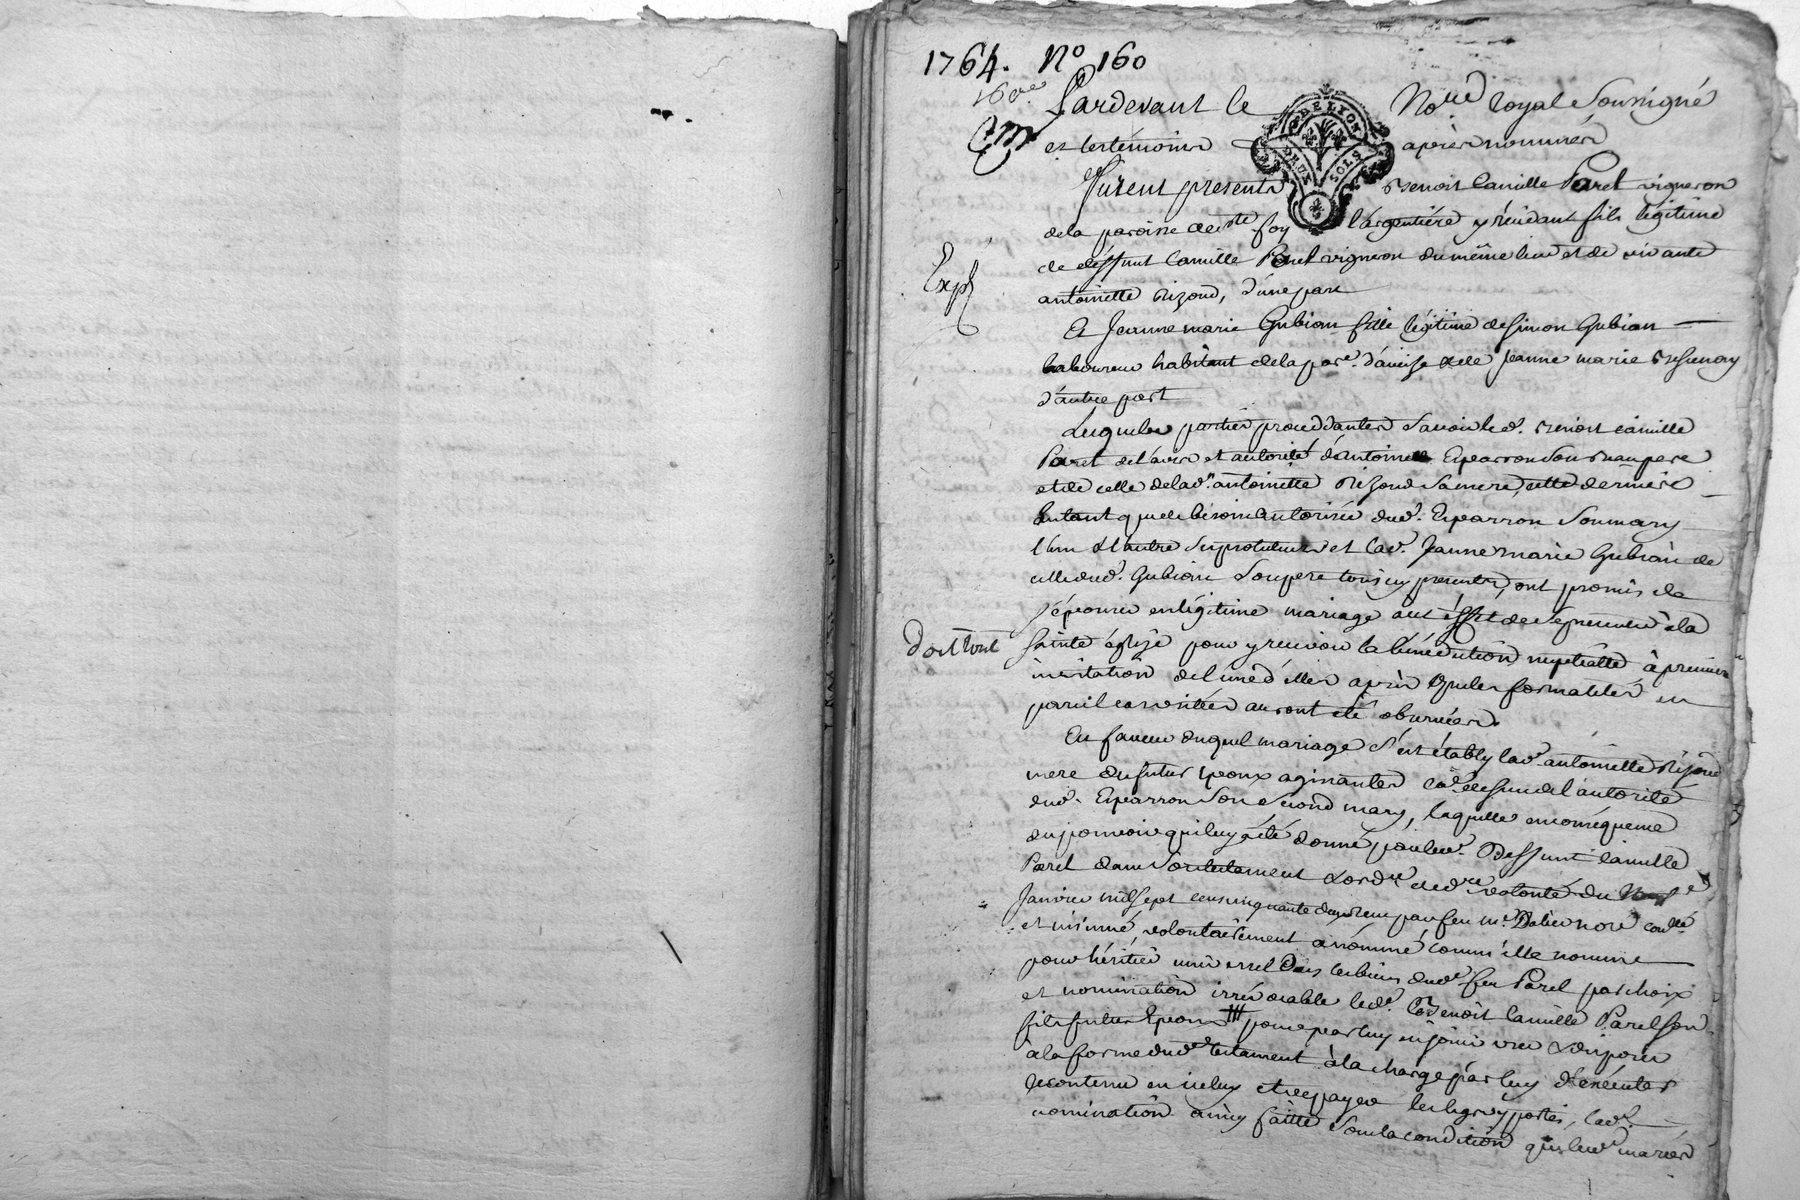 1764. No 160
160e
Pardevant le Nore royal Soussigné
Cm
et les témoins après nommés
DE LYON
DEUX SOLS
Furent presents Benoit Camille Parel vigneron
de la paroisse de ste foy l'argentiére y résidant fils légitime
de deffunt Camille Parel vigneron du même lieu et de vivante
Expd
antoinette Rizoud, d'une part
Et Jeanne marie Gubian fille légitime de Simon Gubian
laboureur habitant de la parr. d'aveise et de jeanne marie
d'autre part
Lesquelles parties procedantes Savoir led. Benoit Camille
Parel de l'avis et autorité d'Antoine Eparron Son beaupere
et de celle de lad. antoinette Rizoud Sa mere, cette derniere
Entant que de besoin autorisée dud. Eparron Son mary
l'un et l'autre Ses protuteurs et lad. Jeanne marie Gubian de
celle dud. Gubian Son pere tous icy presents, ont promis de
s'épouser en légitime mariage aux effet de se presenter à la
Doit tout
Sainte église pour y recevoir la bénédiction nuptialle à premiere
invitation de l'une d'elles après que les formalités en
pareil cas usitées auront été observées
En faveur duquel mariage S'est établly lad. antoinette Rizoud
mere du futur epoux agissante Co. dessus de l'autorité
dud. Eparron Son Second mary, laquelle en conséquence
du pouvoir qui luy a été donné par led. Deffunt Camille
Parel dans Son testament et ordre de dre volonté du
Janvier mil sept cens cinquante deux reçu par feu me. Notre conlle
et insinué, volontairement à nommé comm'elle nomme
pour héritier universel Dans les biens dud. feu Parel par choix
et nomination irrévocable led. Benoit Camille Parel son
fils futur Epoux pour par luy en jouir user et disposer
à la forme dud. testament à la charge par luy d'exécuter
le contenu en iceluy et de payer les legs y portés, lad.
nomination ainsy faitte Sous la condition que les mariés